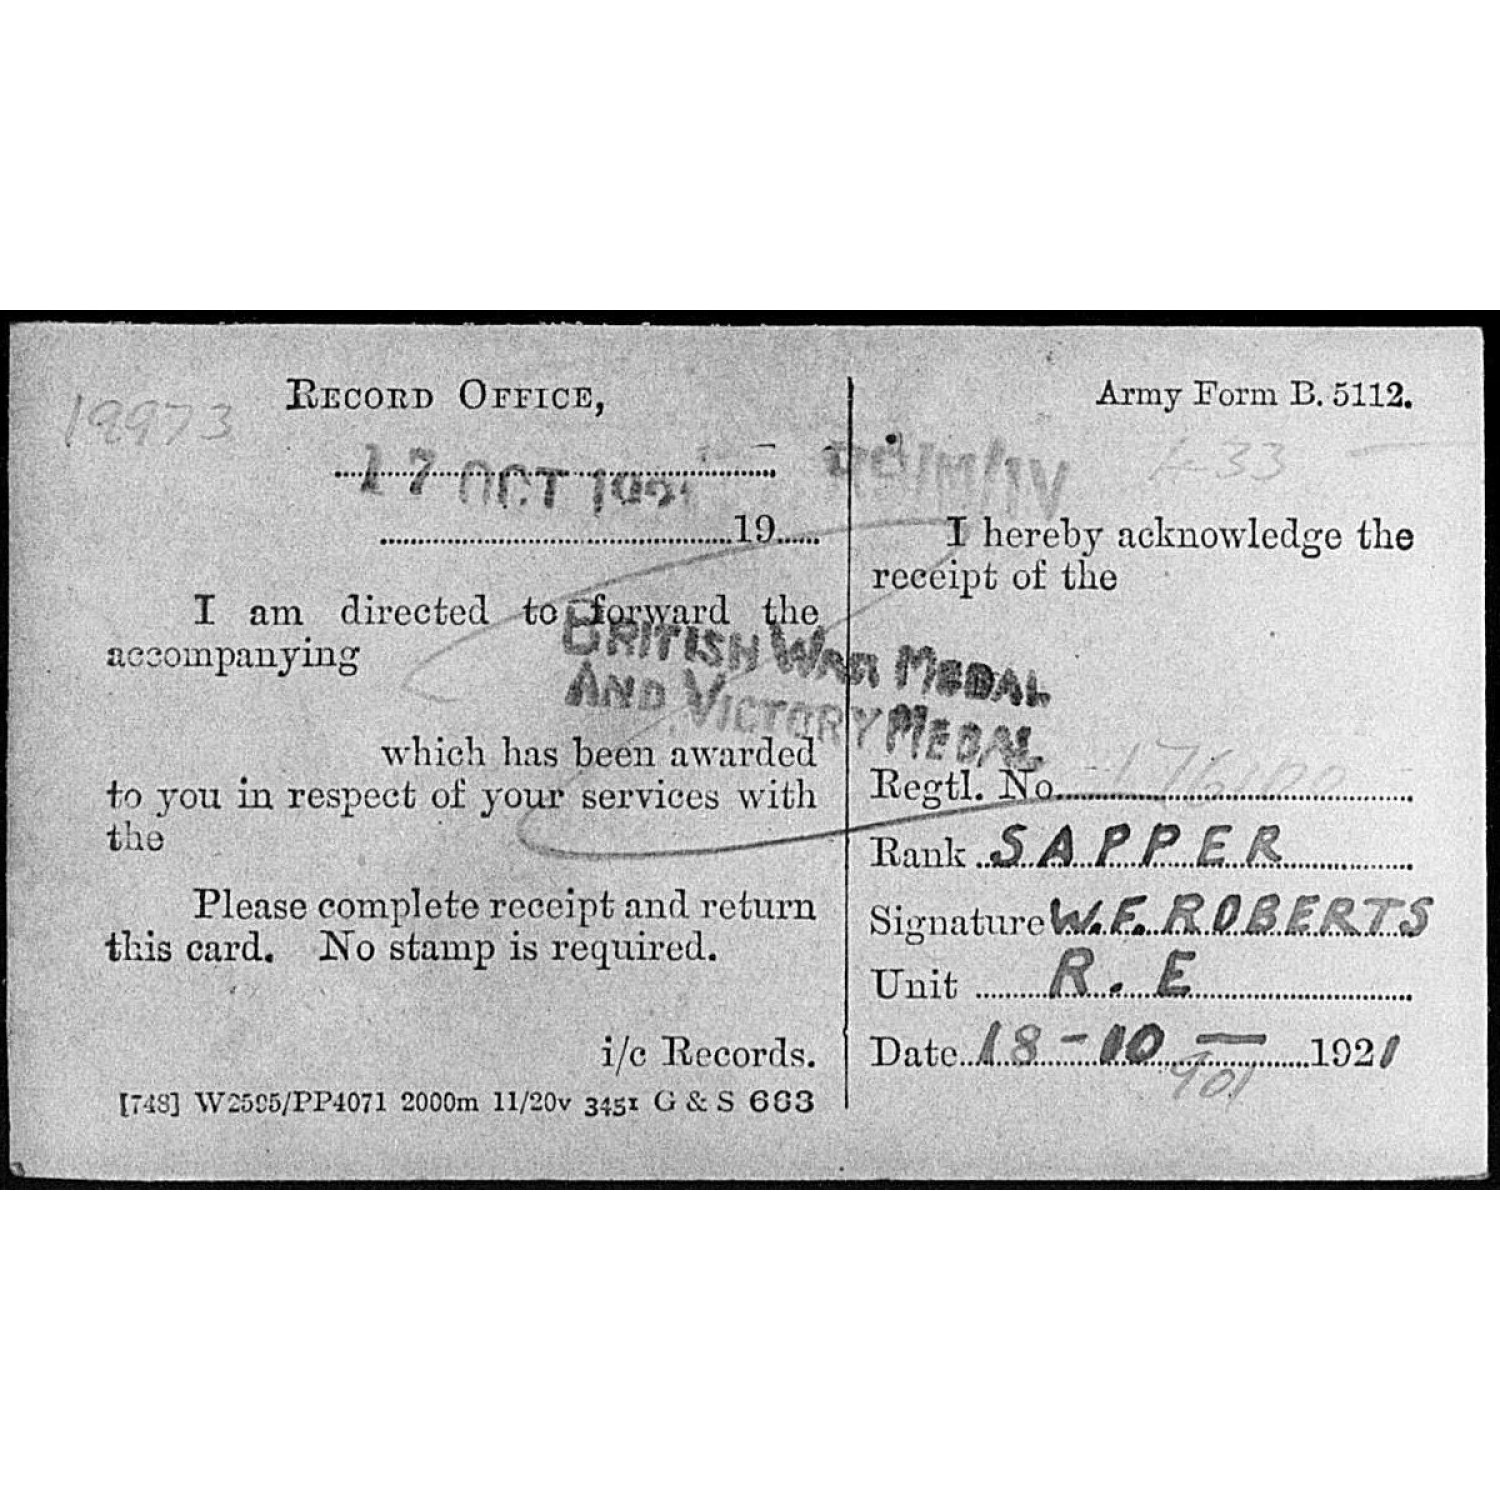 19973
RECORD OFFICE,
17 OCT 1921
19
I am directed to forward the
accompanying
BRITISH WAR MEDAL
AND VICTORY MEDAL
which has been awarded
to you in respect of your services with
the
Please complete receipt and return
this card. No stamp is required.
i/c Records.
[748] W2595/PP4071 2000m 11/20v 3451 G & S 663
Army Form B. 5112.
I hereby acknowledge the
receipt of the
Regtl. No. 176100
Rank SAPPER
Signature W.F. ROBERTS
Unit R. E
Date 18-10 1921